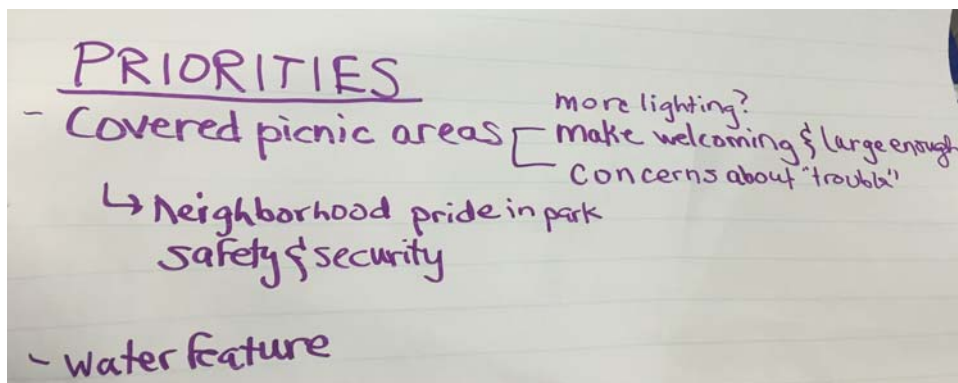 PRIORITIES
more lighting?
- Covered picnic areas [ make welcoming & large enough
concerns about "trouble"
↳ Neighborhood pride in park
safety & security
- water feature